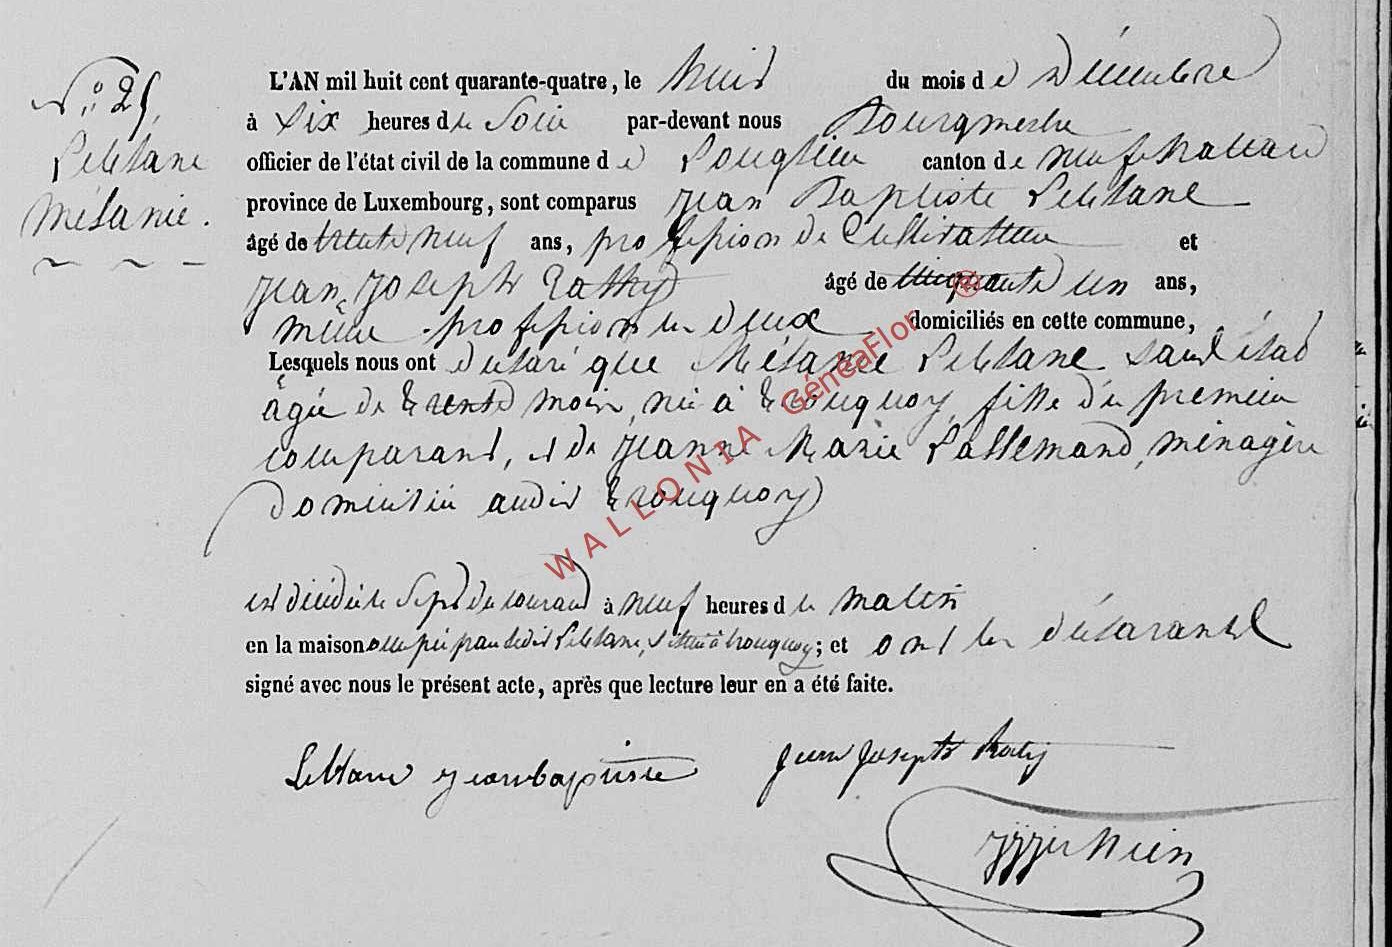 N.° 25,
Leblanc
Mélanie.
L'AN mil huit cent quarante-quatre, le huit du mois de Décembre
à Six heures du Soir par-devant nous Bourgmestre
officier de l'état civil de la commune de Longlier canton de neufchateau
province de Luxembourg, sont comparus Jean Baptiste Leblanc
âgé de trente neuf ans, profession de Cultivateur et
Jean Joseph Rathy âgé de cinquante un ans,
même profession les deux domiciliés en cette commune,
Lesquels nous ont déclaré que Mélanie Leblanc sans état
agée de trente mois, née à tronquoy, fille du premier
comparant, et de Jeanne Marie Lallemand, ménagère
Domiciliée audit tronquoy
est décédée le Sept du courant à neuf heures du matin
en la maison occupée par ledit Leblanc, située à tronquoy; et ont les déclarants
signé avec nous le présent acte, après que lecture leur en a été faite.
Leblanc jeanbaptiste Jean Joseph Raty
WALLONIA GénéaFlor ®